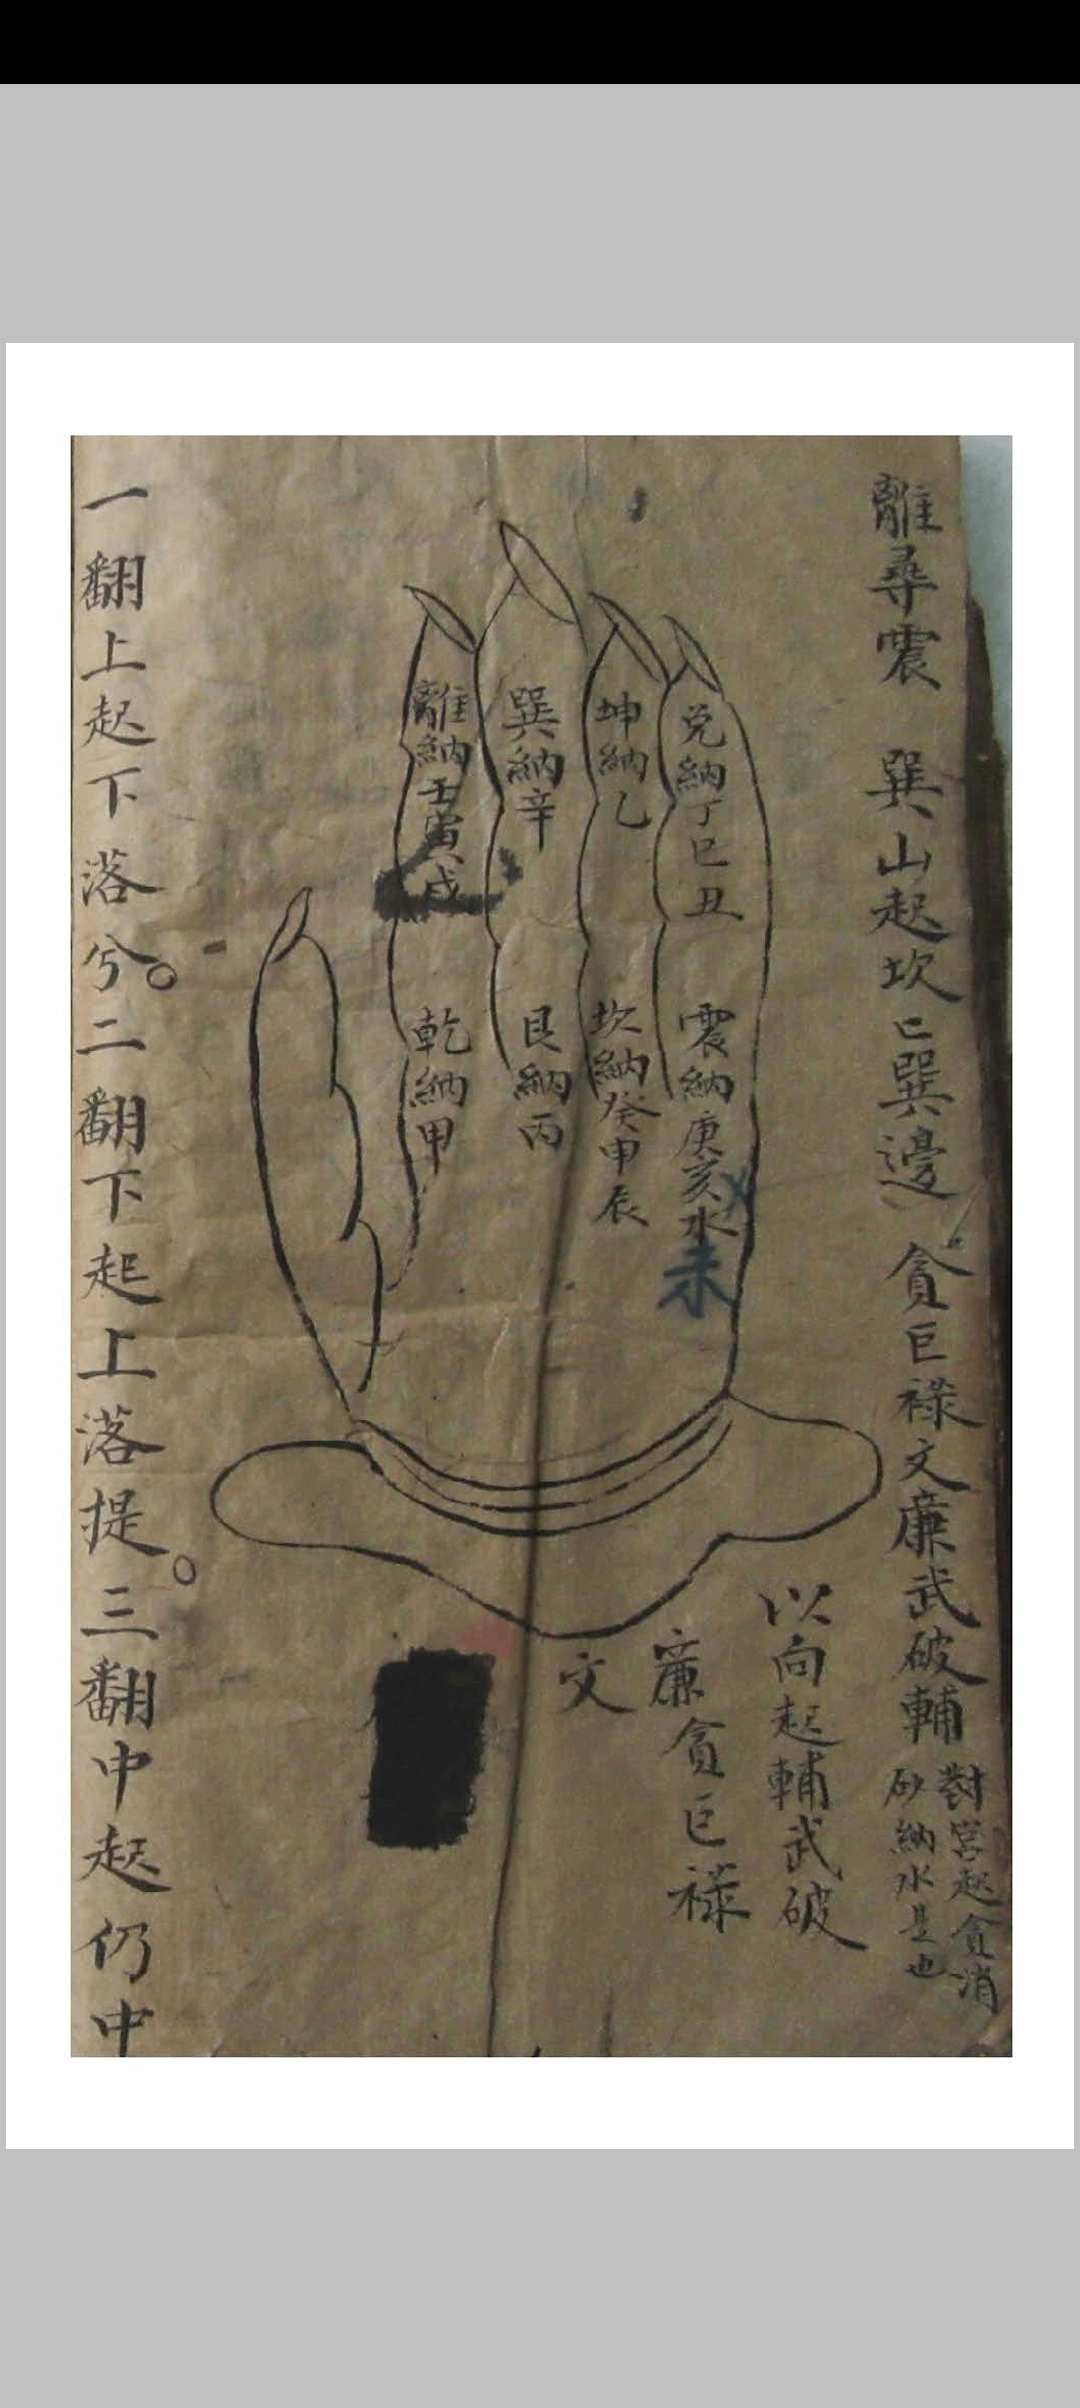 離尋震　巽山起坎㔾巽邊　貪巨祿文廉武破輔
對宮起貪消
砂納水是也
以向起輔武破
廉貪巨祿
文
兌納丁巳丑
震納庚亥未
未
坤納乙
坎納癸申辰
巽納辛
艮納丙
離納壬寅戌
乾納甲
一翻上起下落兮。二翻下起上落提。三翻中起仍中